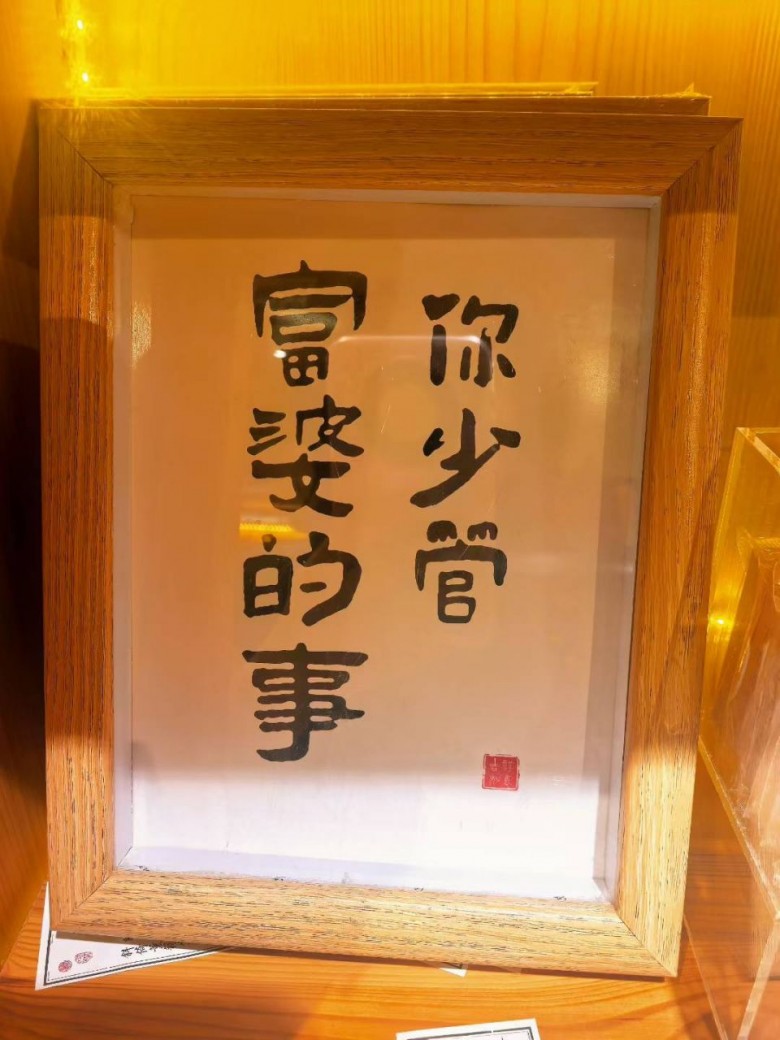 你少管
富婆的事